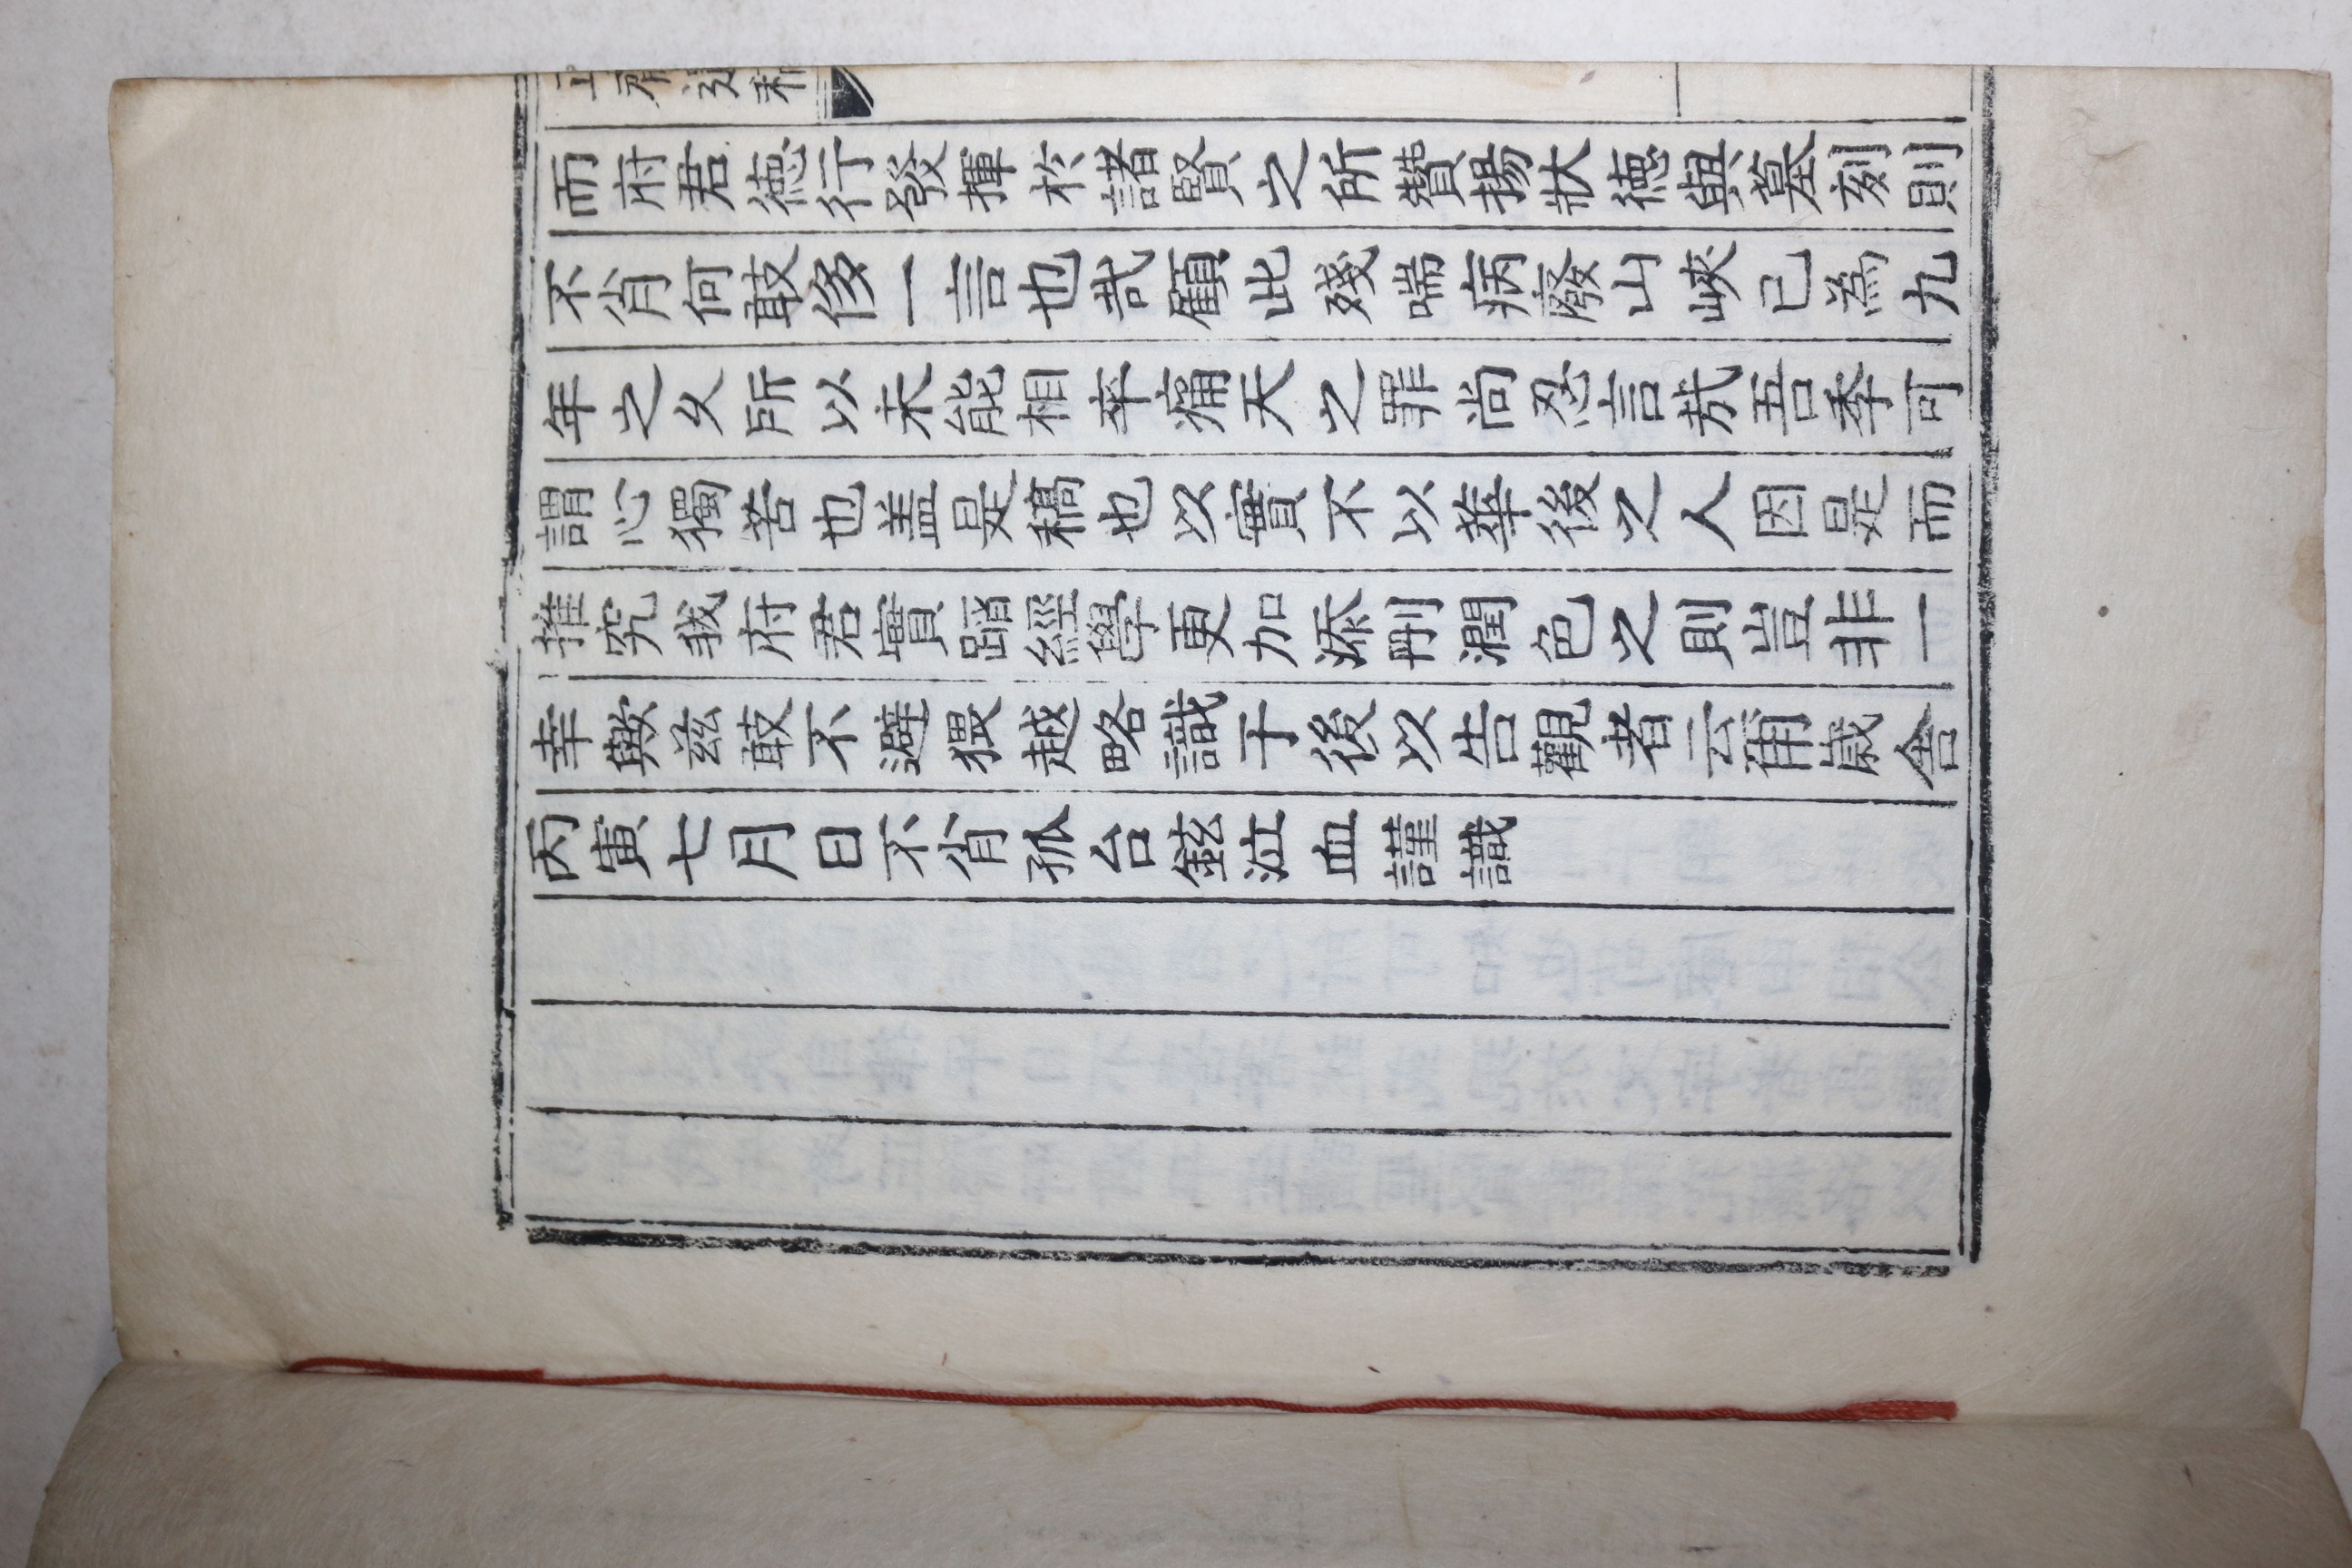 正齋遺稿
而府君德行發揮於諸賢之所贊揚狀德與墓刻則
不肖何敢侈一言也哉顧此殘喘病廢山峽已為九
年之久所以未能相卒痛天之罪尚忍言哉吾季可
謂心獨苦也盖是稿也以實不以華後之人因是而
推究我府君實蹈經學更加添刪潤色之則豈非一
幸歟茲敢不避猥越略識于後以告觀者云爾歲舍
丙寅七月日不肖孤台鉉泣血謹識